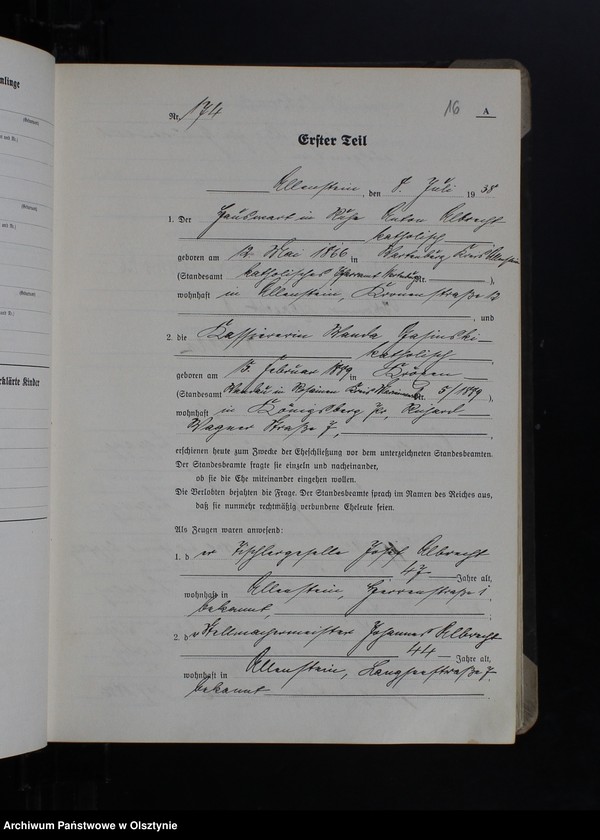 mlinge
Nr. 174
16 A
Erster Teil
Allenstein, den 8. Juli 1938
1. Der Hauswart in Ruhe Anton Albrecht
katholisch
geboren am 12. Mai 1866 in Wartenburg, Kreis Allenstein
(Standesamt katholisches Pfarramt Wartenburg Nr. ),
wohnhaft in Allenstein, Kronenstraße 13
, und
2. die Kassiererin Wanda Jasinski
erklärte Kinder
katholisch
geboren am 15. Februar 1889 in
(Standesamt in Kreis Nr. 5/1889 ),
wohnhaft in Königsberg Pr, Richard
Wagner Straße 7,
erschienen heute zum Zwecke der Eheschließung vor dem unterzeichneten Standesbeamten.
Der Standesbeamte fragte sie einzeln und nacheinander,
ob sie die Ehe miteinander eingehen wollen.
Die Verlobten bejahten die Frage. Der Standesbeamte sprach im Namen des Reiches aus,
daß sie nunmehr rechtmäßig verbundene Eheleute seien.
Als Zeugen waren anwesend:
1. der Tischlergeselle Josef Albrecht
47 Jahre alt,
wohnhaft in Allenstein, Herrenstraße
bekannt,
2. der Stellmachermeister Johannes Albrecht
44 Jahre alt,
wohnhaft in Allenstein, Langseestraße 7
bekannt
Archiwum Państwowe w Olsztynie